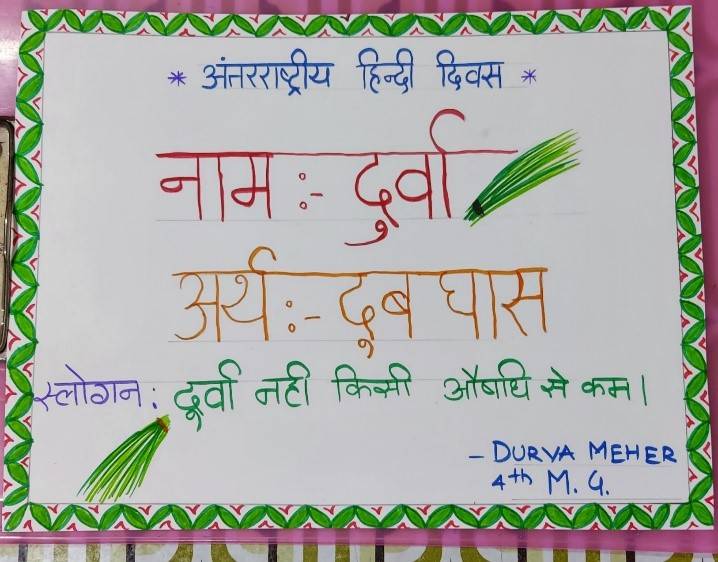 * अंतरराष्ट्रीय हिन्दी दिवस *
नाम :- दुर्वा
अर्थ :- दूब घास
स्लोगन : दूर्वा नही किसी औषधि से कम।
- DURVA MEHER
4th M. G.